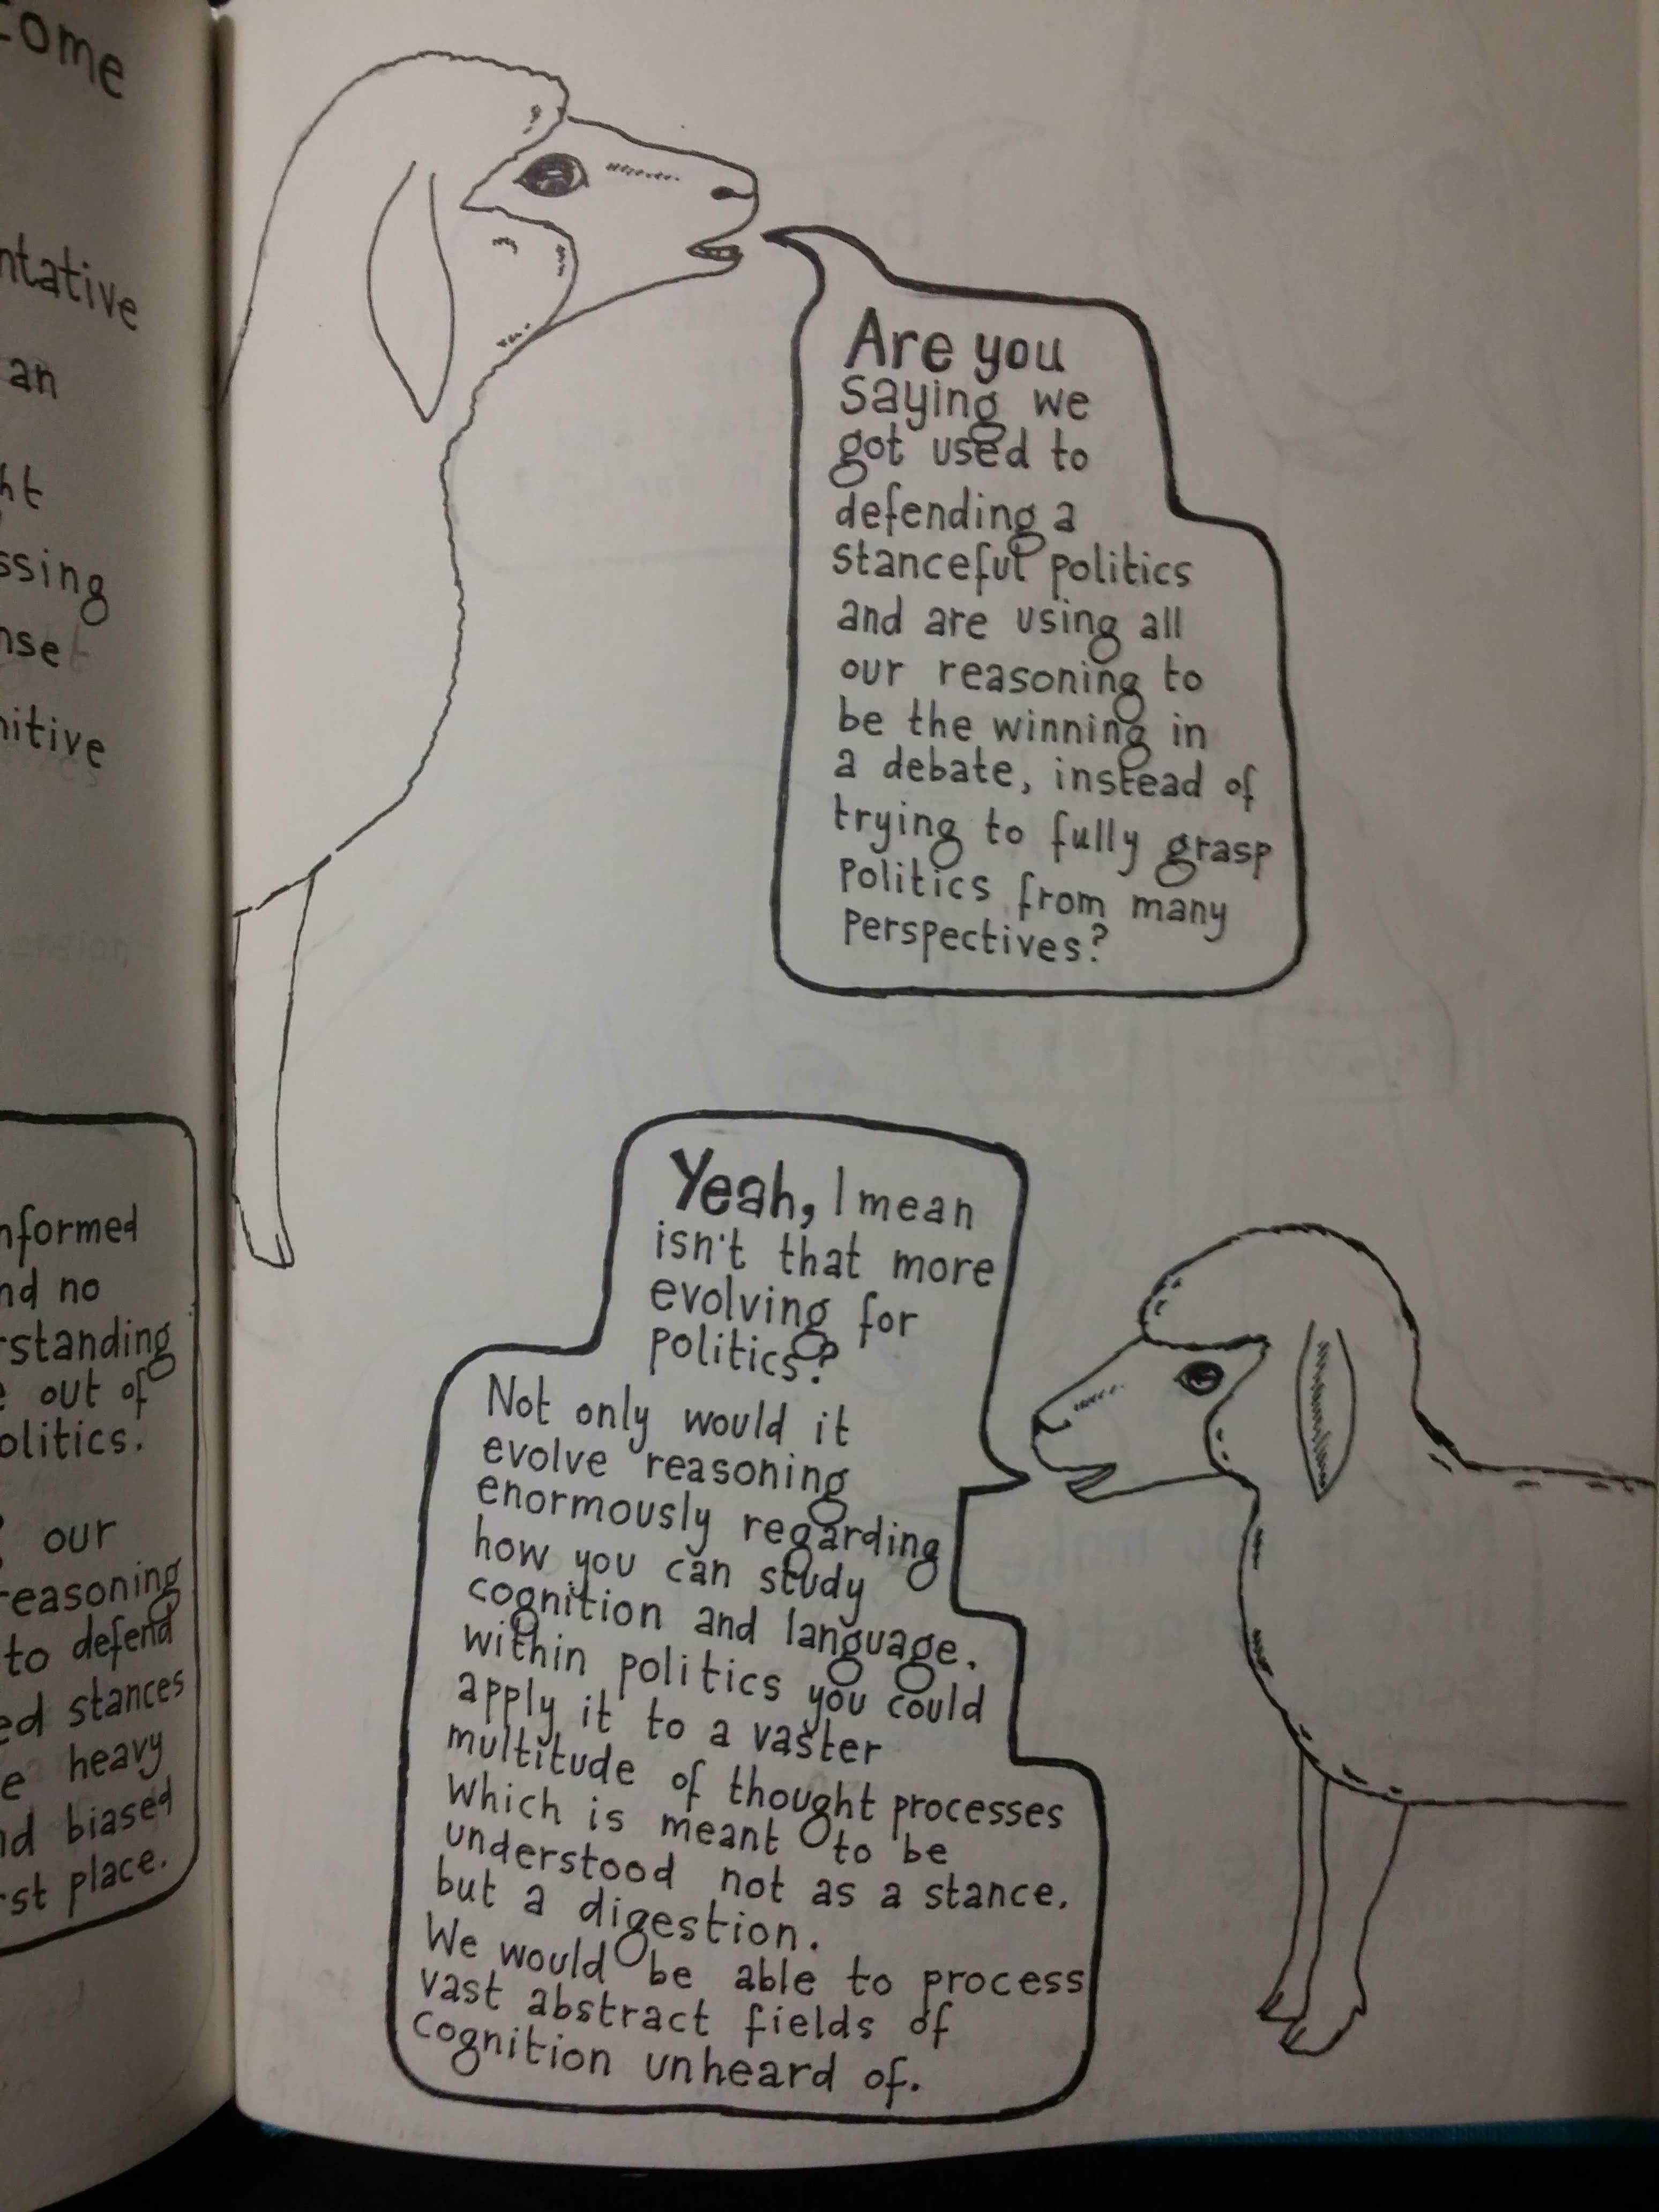 come
ntative
an
ht
ssing
nse
nitive
nformed
nd no
rstanding
out of
olitics.
our
reasoning
to defend
ed stances
e heavy
nd biased
rst place.
Are you
saying we
got used to
defending a
stanceful politics
and are using all
our reasoning to
be the winning in
a debate, instead of
trying to fully grasp
Politics from many
perspectives?
Yeah, I mean
isn't that more
evolving for
politics?
Not only would it
evolve reasoning
enormously regarding
how you can study
cognition and language.
within politics you could
apply it to a vaster
multitude of thought processes
which is meant to be
understood not as a stance.
but a digestion.
We would be able to process
vast abstract fields of
cognition unheard of.